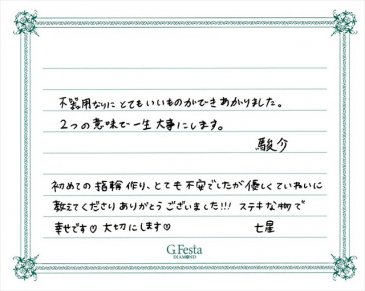 不器用なりにとてもいいものができあがりました。
2つの意味で一生大事にします。
駿介
初めての指輪作り、とても不安でしたが優しくていねいに
教えてくださりありがとうございました!!! ステキな物で
幸せです♡ 大切にします♡ 七星
G.Festa
DIAMOND